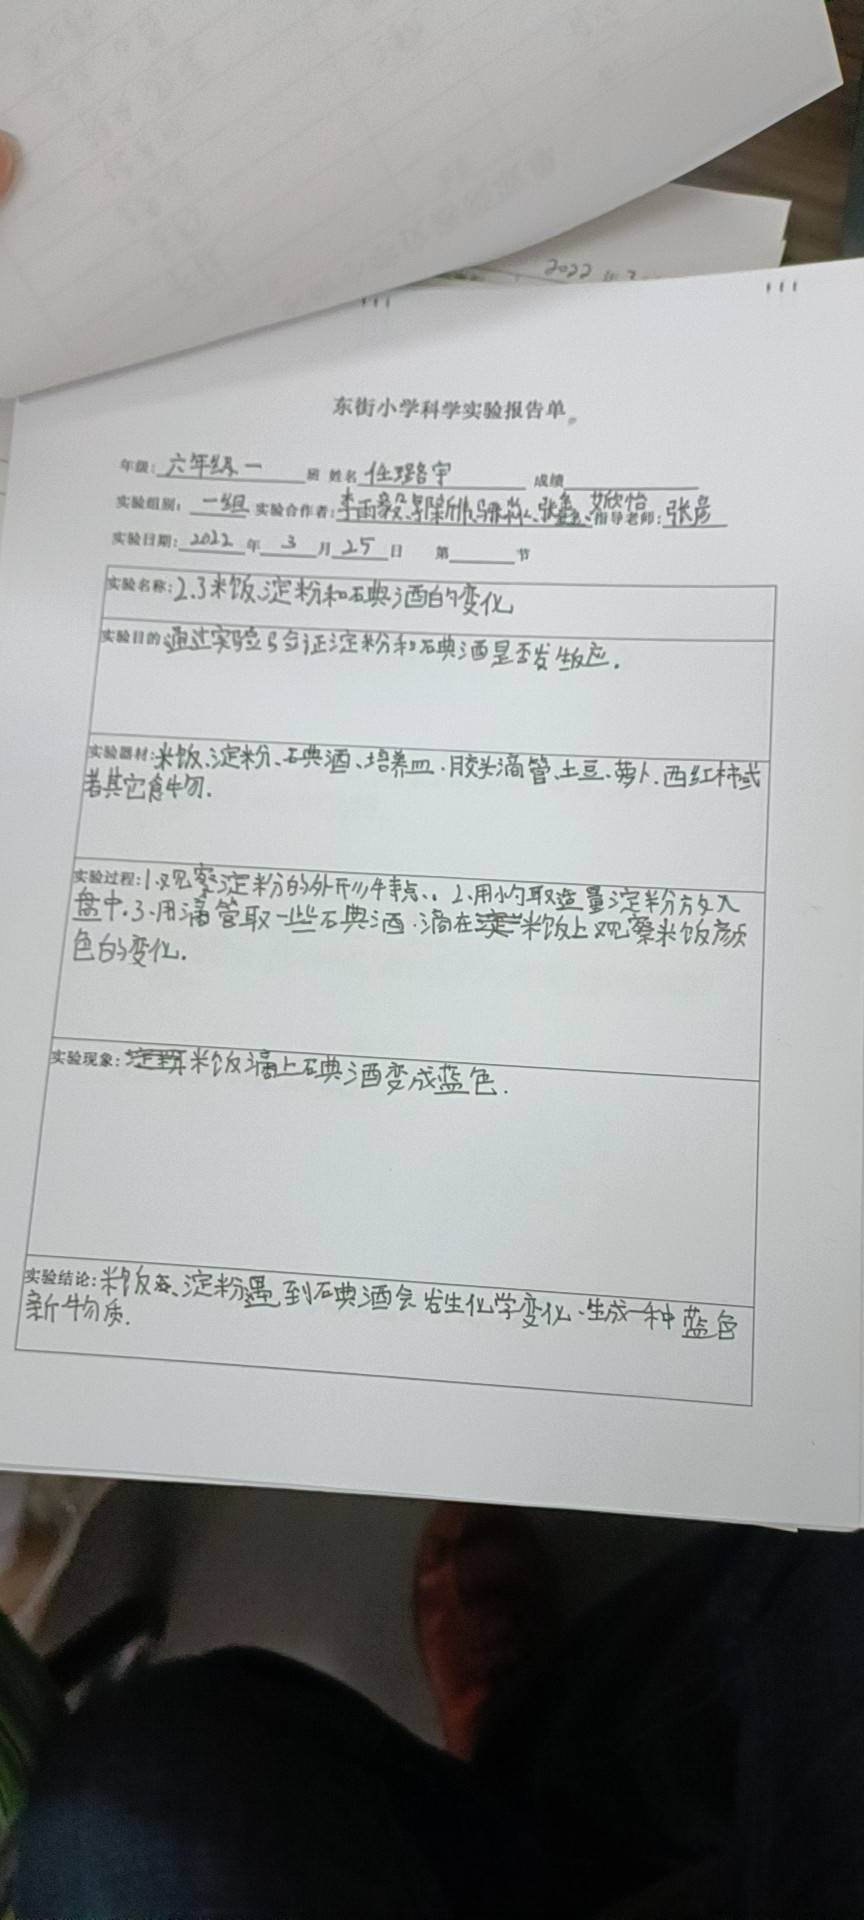 2022 年 3
东街小学科学实验报告单
年级:六年级一 班 姓名 任璐宇 成绩
实验组别: 一组 实验合作者:李雨毅、 张 艾欣怡 指导老师: 张彦
实验日期: 2022 年 3 月 25 日 第 节
实验名称:2.3米饭、淀粉和碘酒的变化
实验目的:通过实验验证淀粉和碘酒是否发生反应.
实验器材:米饭、淀粉、碘酒、培养皿.胶头滴管、土豆、萝卜.西红柿或
者其它食物.
实验过程:1.观察淀粉的外形特点.. 2.用小勺取适量淀粉放入
盘中.3.用滴管取一些碘酒.滴在米饭上观察米饭颜
色的变化.
实验现象: 米饭滴上碘酒变成蓝色.
实验结论:米饭、淀粉遇到碘酒会发生化学变化.生成一种蓝色
新物质.